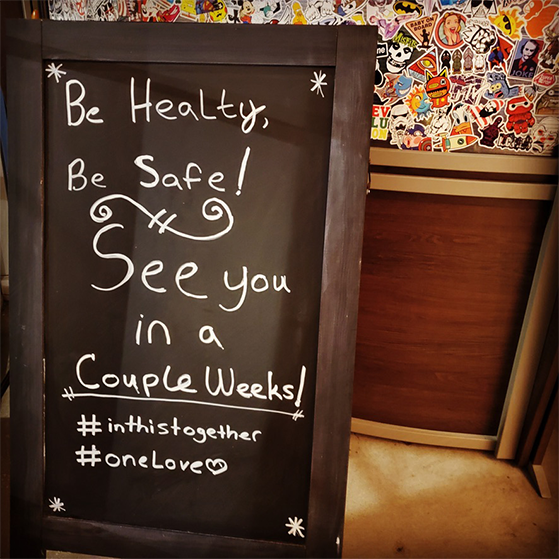 Be Healty,
Be Safe!
See you
in a
Couple Weeks!
#inthistogether
#oneLove♡